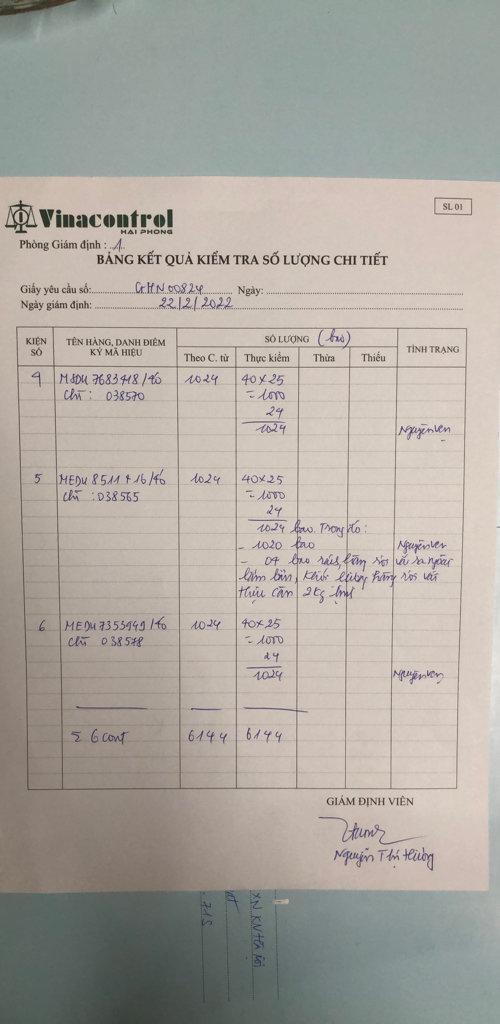 Vinacontrol
HAI PHONG
SL 01
Phòng Giám định : 1
BẢNG KẾT QUẢ KIỂM TRA SỐ LƯỢNG CHI TIẾT
Giấy yêu cầu số: GHN00824 Ngày:
Ngày giám định: 22/2/2022
KIỆN SỐ
TÊN HÀNG, DANH ĐIỂM KÝ MÃ HIỆU
SỐ LƯỢNG (bao)
TÌNH TRẠNG
Theo C. từ Thực kiểm Thừa Thiếu
4 MSDU 7683418/40 1024 40×25
chì : 038570 = 1000
24
1024 Nguyên vẹn
5 MEDU 8511716/40 1024 40×25
chì : 038565 = 1000
24
1024 bao. Trong đó :
- 1020 bao Nguyên vẹn
- 04 bao rách, hàng rơi vãi ra ngoài
lấm bẩn, khối lượng hàng rơi vãi
thực cân 2kg
6 MEDU 7353949/40 1024 40×25
chì 038578 = 1000
24
1024 Nguyên vẹn
Σ 6 cont 6144 6144
GIÁM ĐỊNH VIÊN
Nguyễn Thị Hường